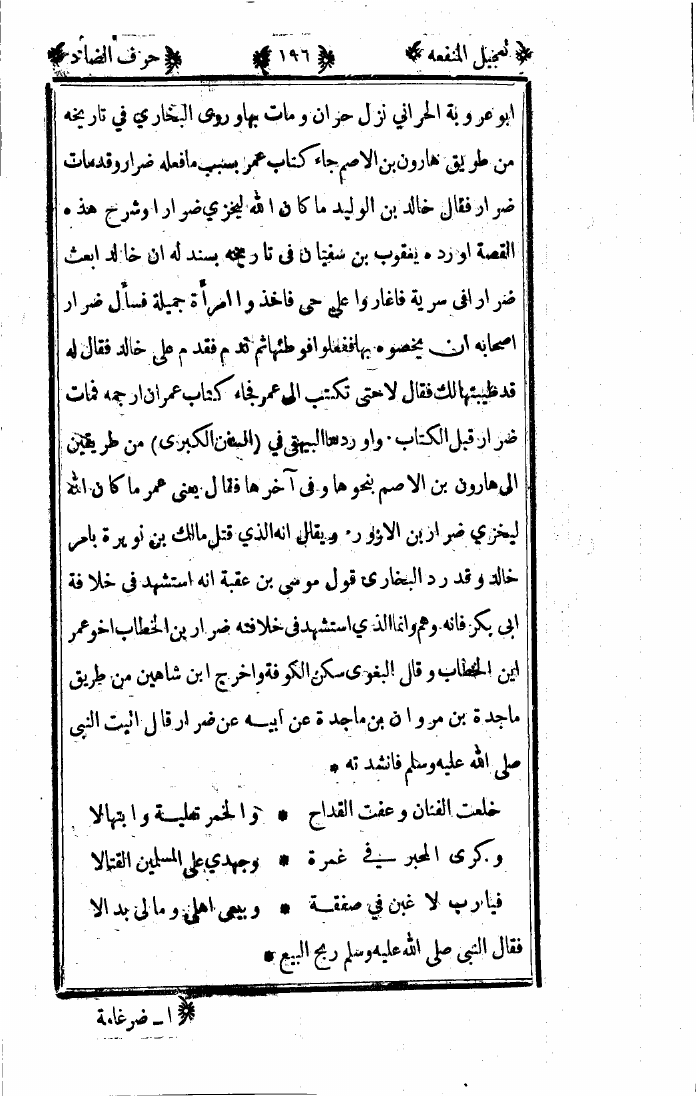 تعجيل المنفعه ١٩٦ حرف الضاد
ابو عروبة الحراني نزل حران ومات بها وروى البخاري في تاريخه
من طريق هارون بن الاصم جاء كتاب عمر بسبب ما فعله ضرار وقد مات
ضرار فقال خالد بن الوليد ما كان الله ليخزي ضرارا وشرح هذه
القصة اورده يعقوب بن سفيان في تاريخه بسند له ان خالدا بعث
ضرارا في سرية فاغاروا على حي فاخذوا امرأة جميلة فسأل ضرار
اصحابه ان يخصوه بها ففعلوا فوطئها ثم ندم فقدم على خالد فقال له
قد طيبتها لك فقال لا حتى تكتب الى عمر فجاء كتاب عمر ان ارجمه فمات
ضرار قبل الكتاب واوردها البيهقي في (السنن الكبرى) من طريقين
الى هارون بن الاصم بنحوها وفي آخرها فقال يعني عمر ما كان الله
ليخزي ضرار بن الازور ويقال انه الذي قتل مالك بن نويرة بامر
خالد وقد رد البخاري قول موسى بن عقبة انه استشهد في خلافة
ابي بكر فانه وهم وانما الذي استشهد في خلافته ضرار بن الخطاب اخو عمر
ابن الخطاب وقال البغوي سكن الكوفة واخرج ابن شاهين من طريق
ماجدة بن مروان بن ماجدة عن ابيه عن ضرار قال اتيت النبي
صلى الله عليه وسلم فانشدته *
خلعت القنان وعفت القداح * والخمر تعلية وابتهالا
وكرى المحبر في غمرة * وجهدي على المسلمين القتالا
فيارب لا غبن في صفقة * وبيعي اهلي ومالي بدالا
فقال النبي صلى الله عليه وسلم ربح البيع *
١ ـ ضرغامة